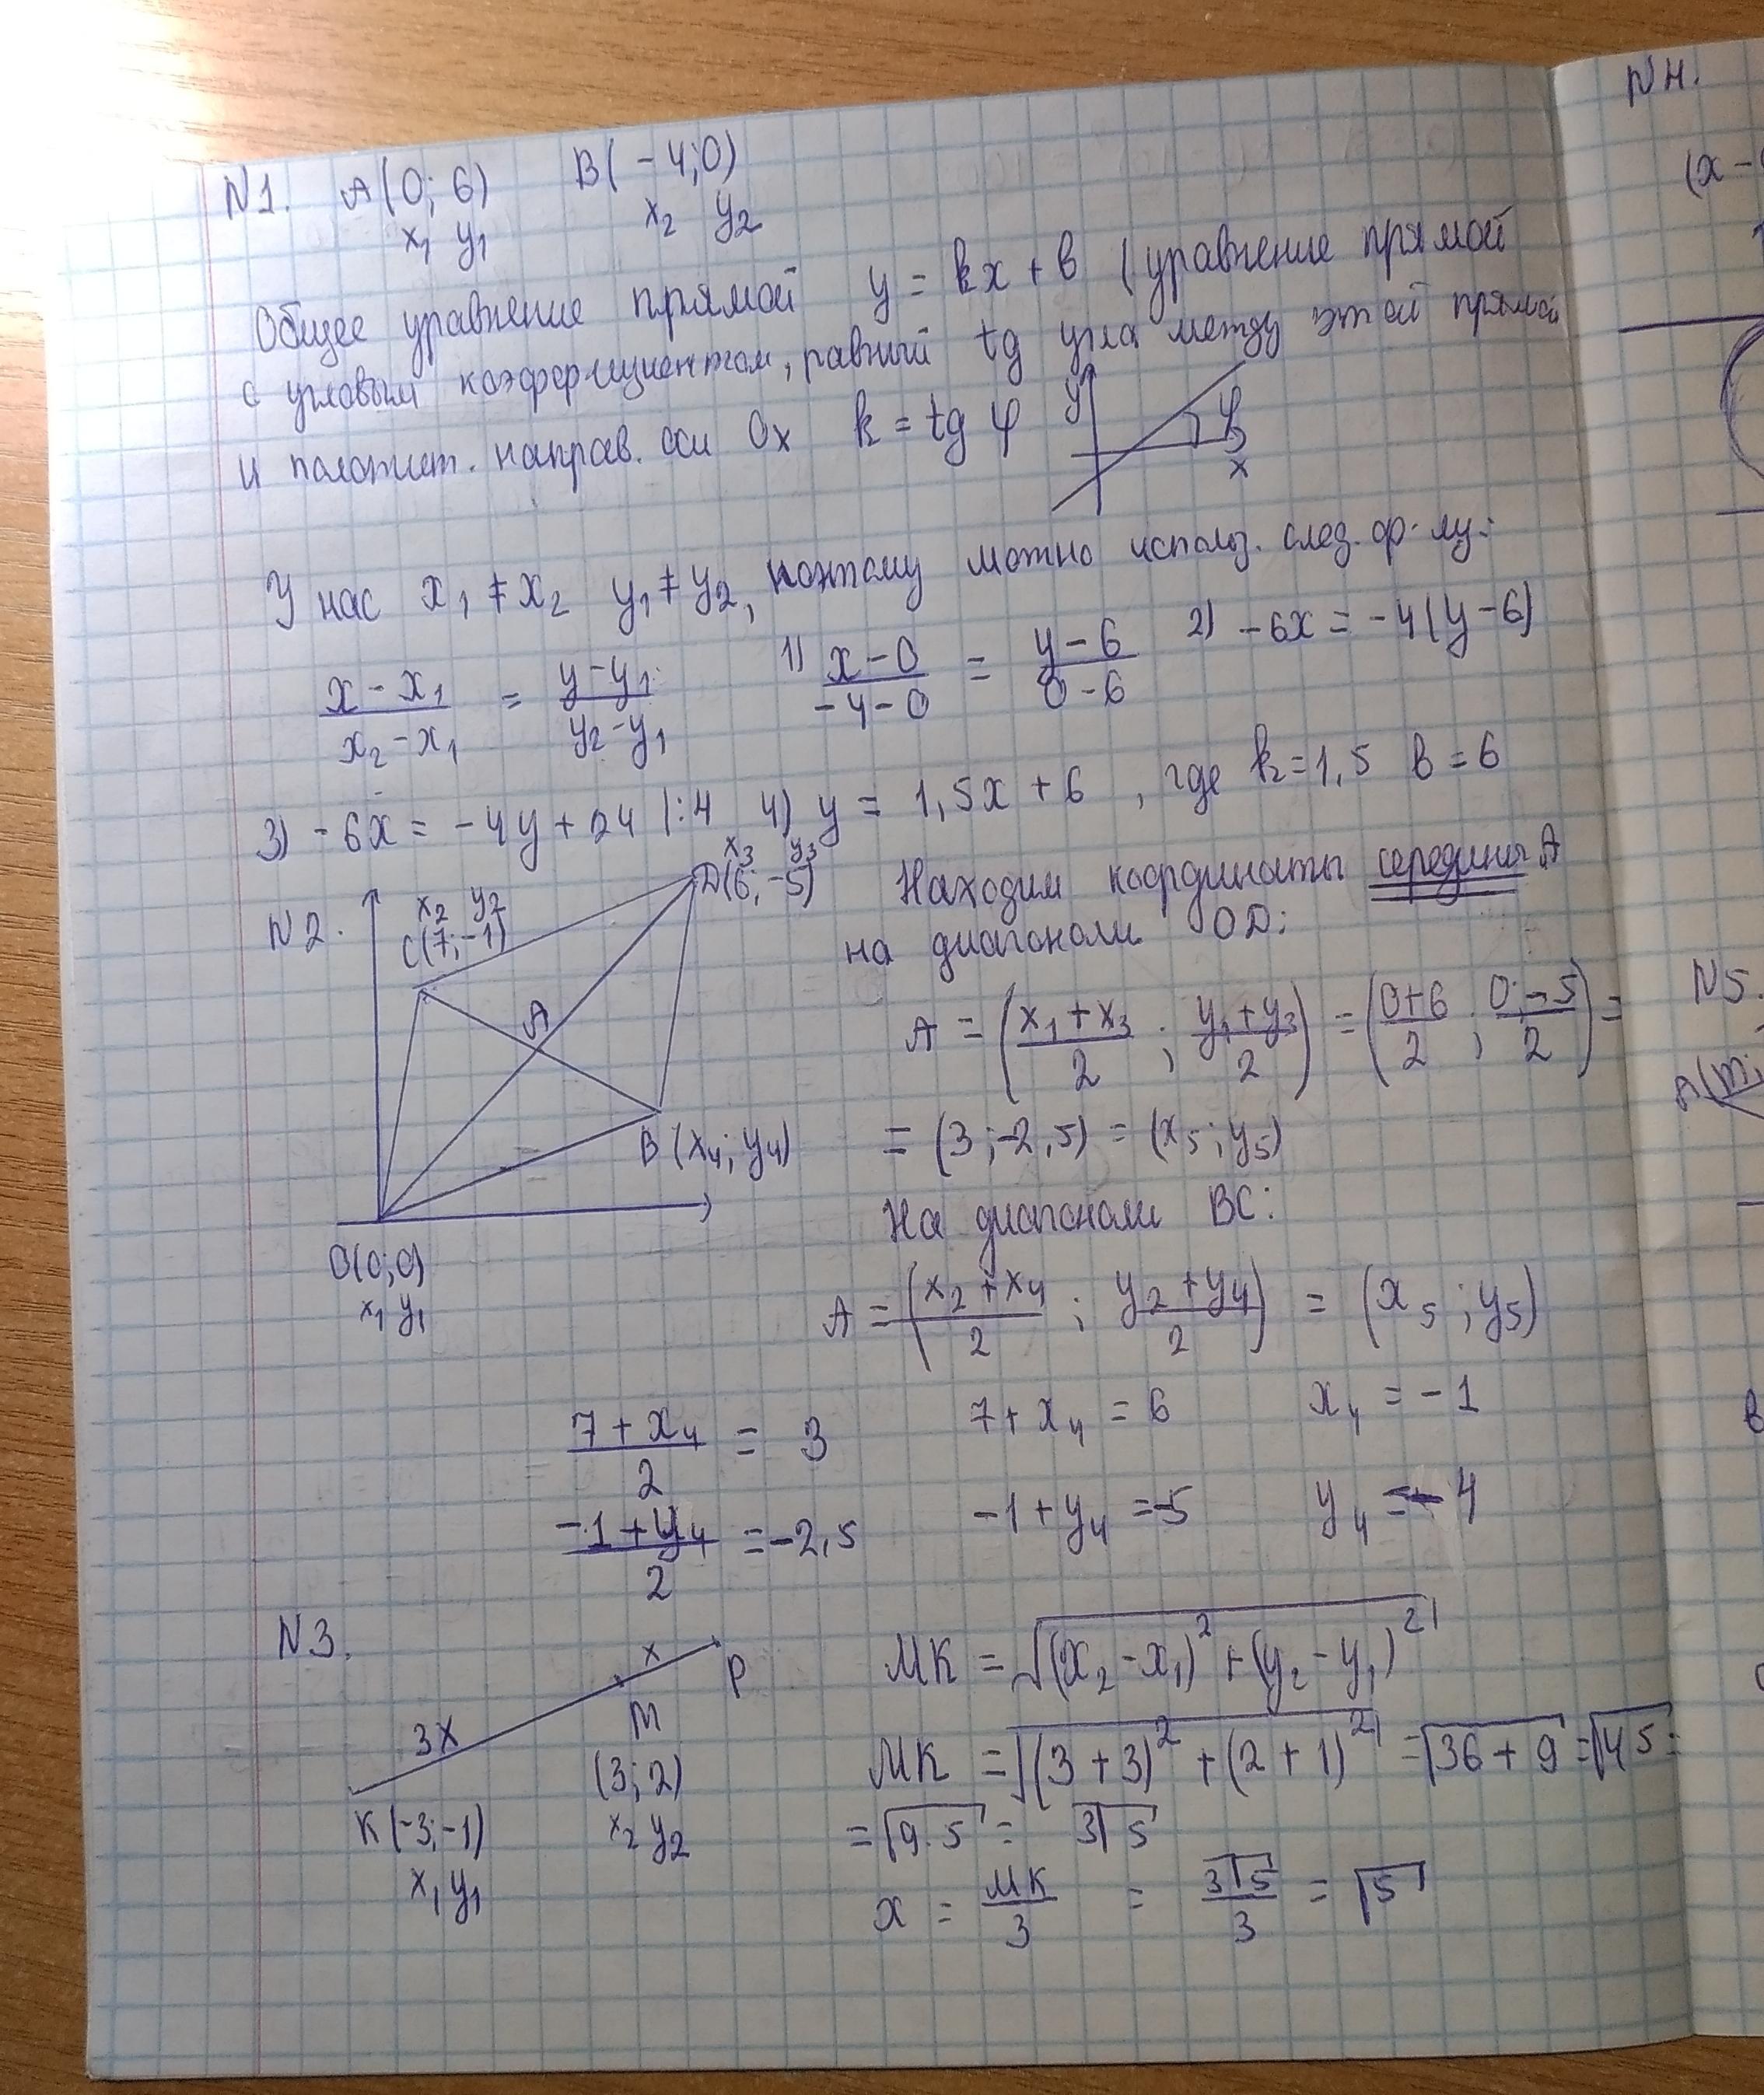 N1. A(0; 6) B(-4;0)
x₁ y₁ x₂ y₂
Общее уравнение прямой y = kx + b (уравнение прямой
с угловым коэффициентом, равный tg угла между этой прямой
и положит. направ. оси Ox k = tg φ
y φ
x
У нас x₁ ≠ x₂ y₁ ≠ y₂, поэтому можно использ. след. ф-лу:
(x - x₁)/(x₂ - x₁) = (y - y₁)/(y₂ - y₁) 1) (x - 0)/(-4 - 0) = (y - 6)/(0 - 6) 2) -6x = -4(y - 6)
3) -6x = -4y + 24 |:4 4) y = 1,5x + 6 , где k = 1,5 b = 6
N2.
x₂ y₂
C(7;-1)
x₃ y₃
D(6; -5)
A
B(x₄; y₄)
O(0;0)
x₁ y₁
Находим координаты середины A
на диагонали OD:
A = ((x₁ + x₃)/2 ; (y₁ + y₃)/2) = ((0+6)/2 ; (0-5)/2) =
= (3 ; -2,5) = (x₅ ; y₅)
На диагонали BC:
A = ((x₂ + x₄)/2 ; (y₂ + y₄)/2) = (x₅ ; y₅)
(7 + x₄)/2 = 3 7 + x₄ = 6 x₄ = -1
(-1 + y₄)/2 = -2,5 -1 + y₄ = -5 y₄ = -4
N3.
3x x
M P
(3; 2)
x₂ y₂
K(-3;-1)
x₁ y₁
MK = √((x₂ - x₁)² + (y₂ - y₁)²)
MK = √((3 + 3)² + (2 + 1)²) = √(36 + 9) = √45 =
= √(9·5) = 3√5
x = MK/3 = 3√5/3 = √5
N4.
(x -
N5.
A(m;